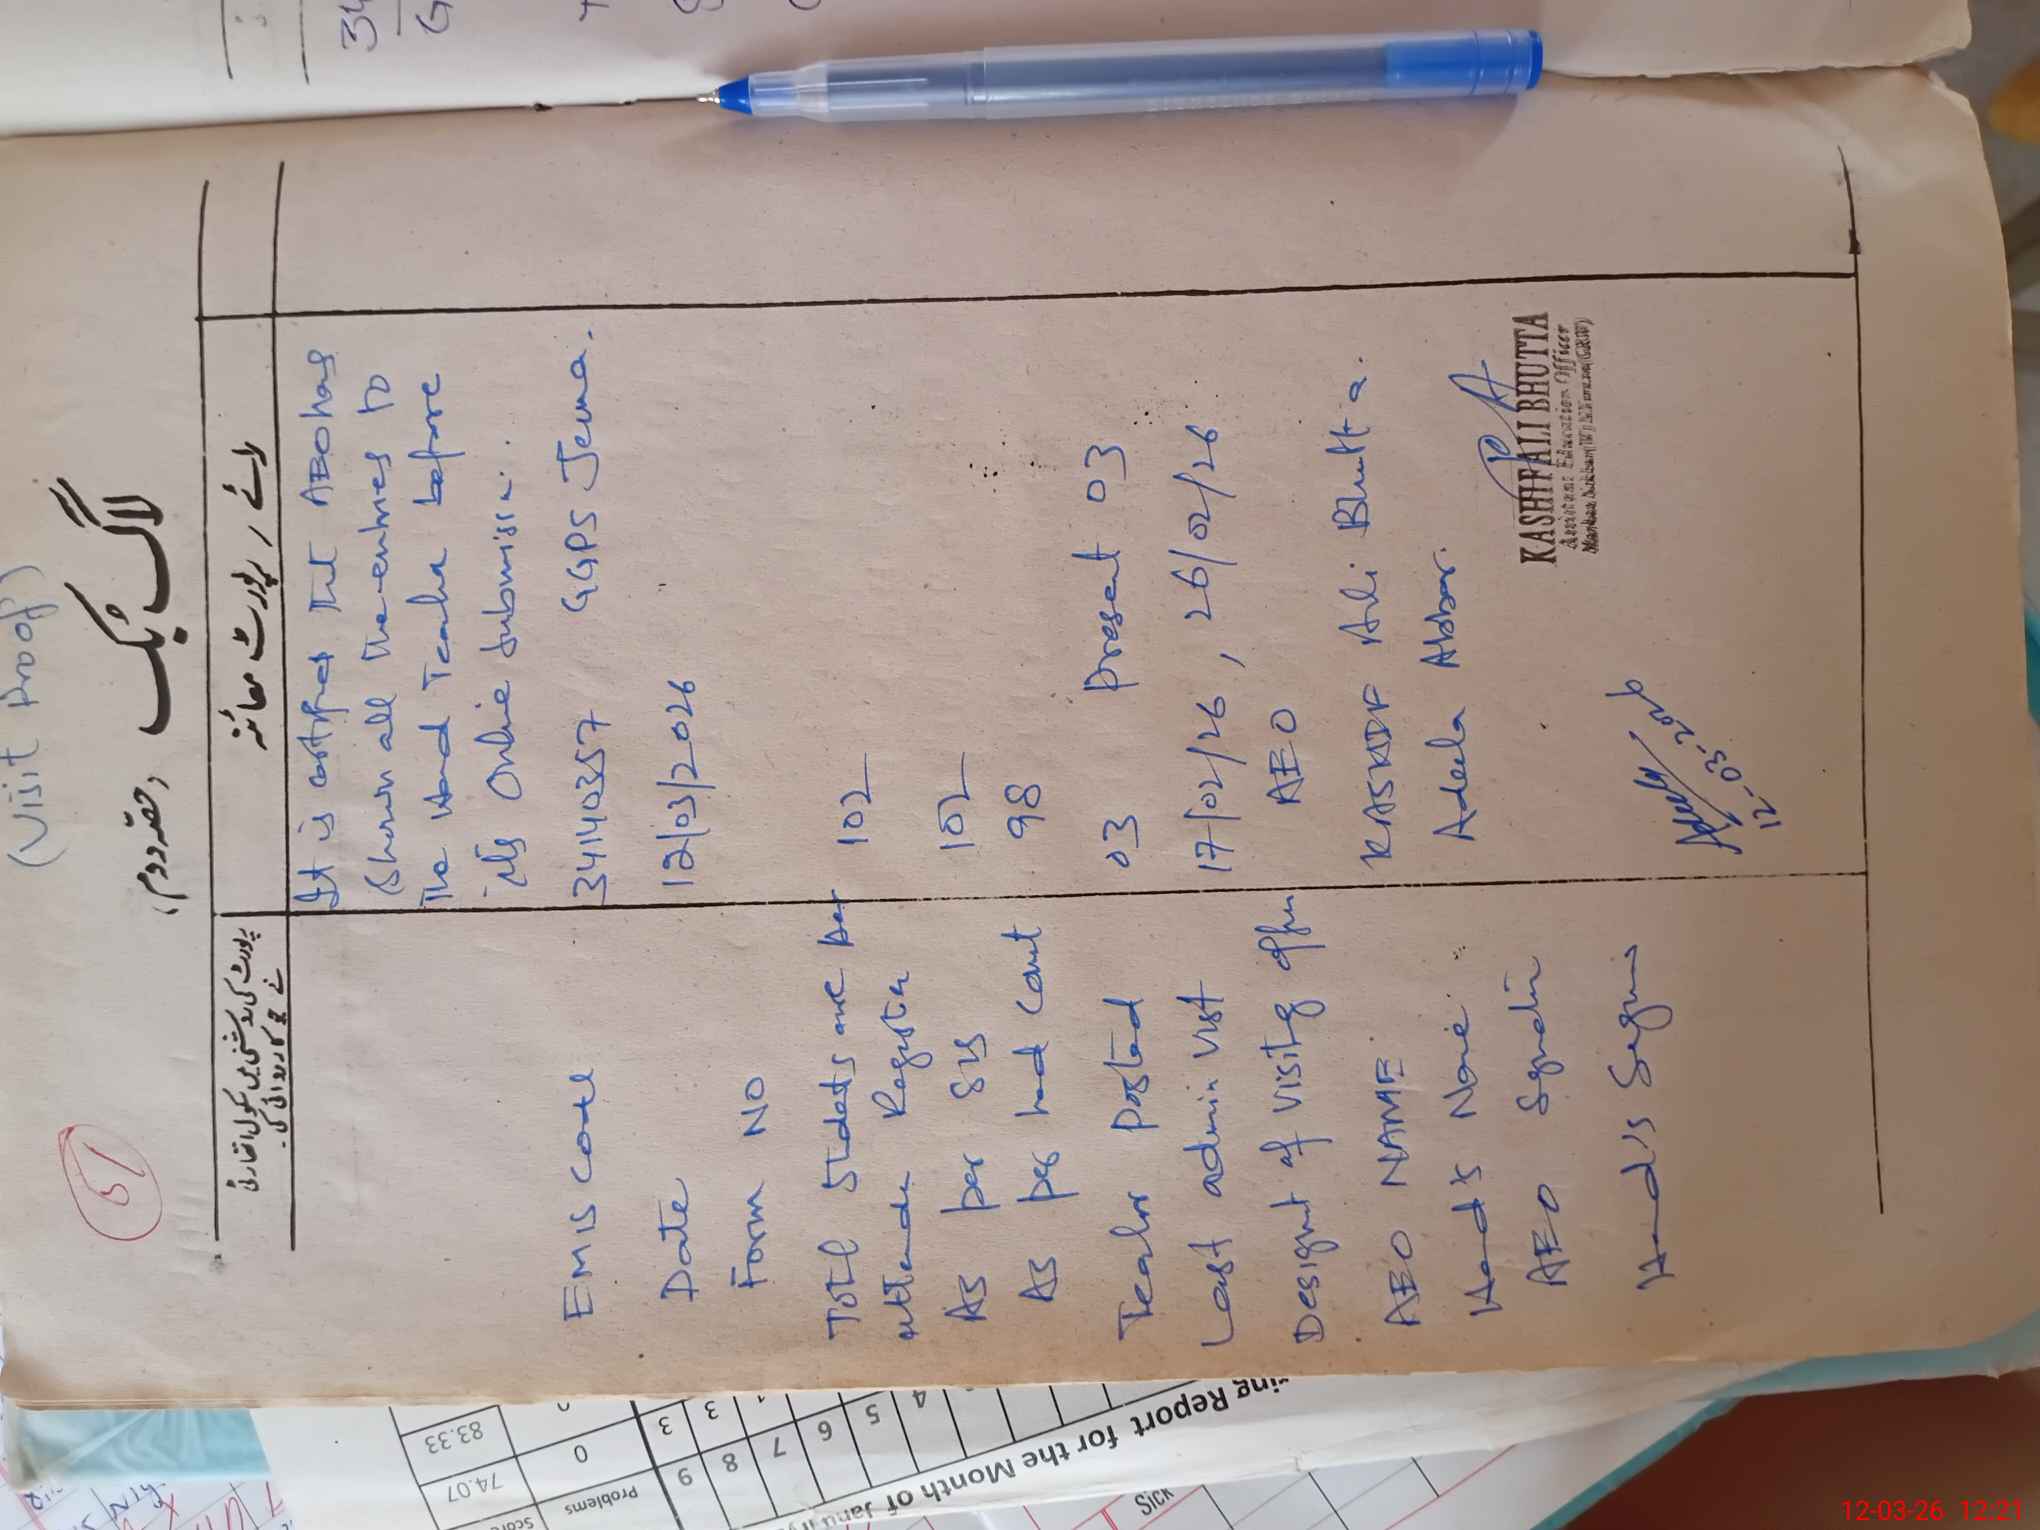 (Visit Proof)
51
لاگ بک (حصہ دوم)
رائے / رپورٹ معائنہ
رپورٹ کی روشنی میں سکول اتھارٹی
نے جو کارروائی کی۔
It is certified that AEO has
shown all the entries to
the Head Teacher before
his Online submission.
EMIS Code 34140357 GGPS Jema.
Date 12/03/2026
Form NO
Total Students are per 102
attendance Register
As per SIS 102
As per head count 98
Teacher posted 03 Present 03
Last admin visit 17/02/26, 26/02/26
Designt of visiting offier AEO
AEO NAME KASHIF Ali Bhutta.
Head's Name Adeela Abbas.
AEO Signature
KASHIF ALI BHUTTA
Assistant Education Officer
Head's Signs
12-03-2026
34
G
83.33
74.07 0
Problems
9 8 7 6 5 4
3 3
ring Report for the Month of Janu
Sick
12-03-26 12:21